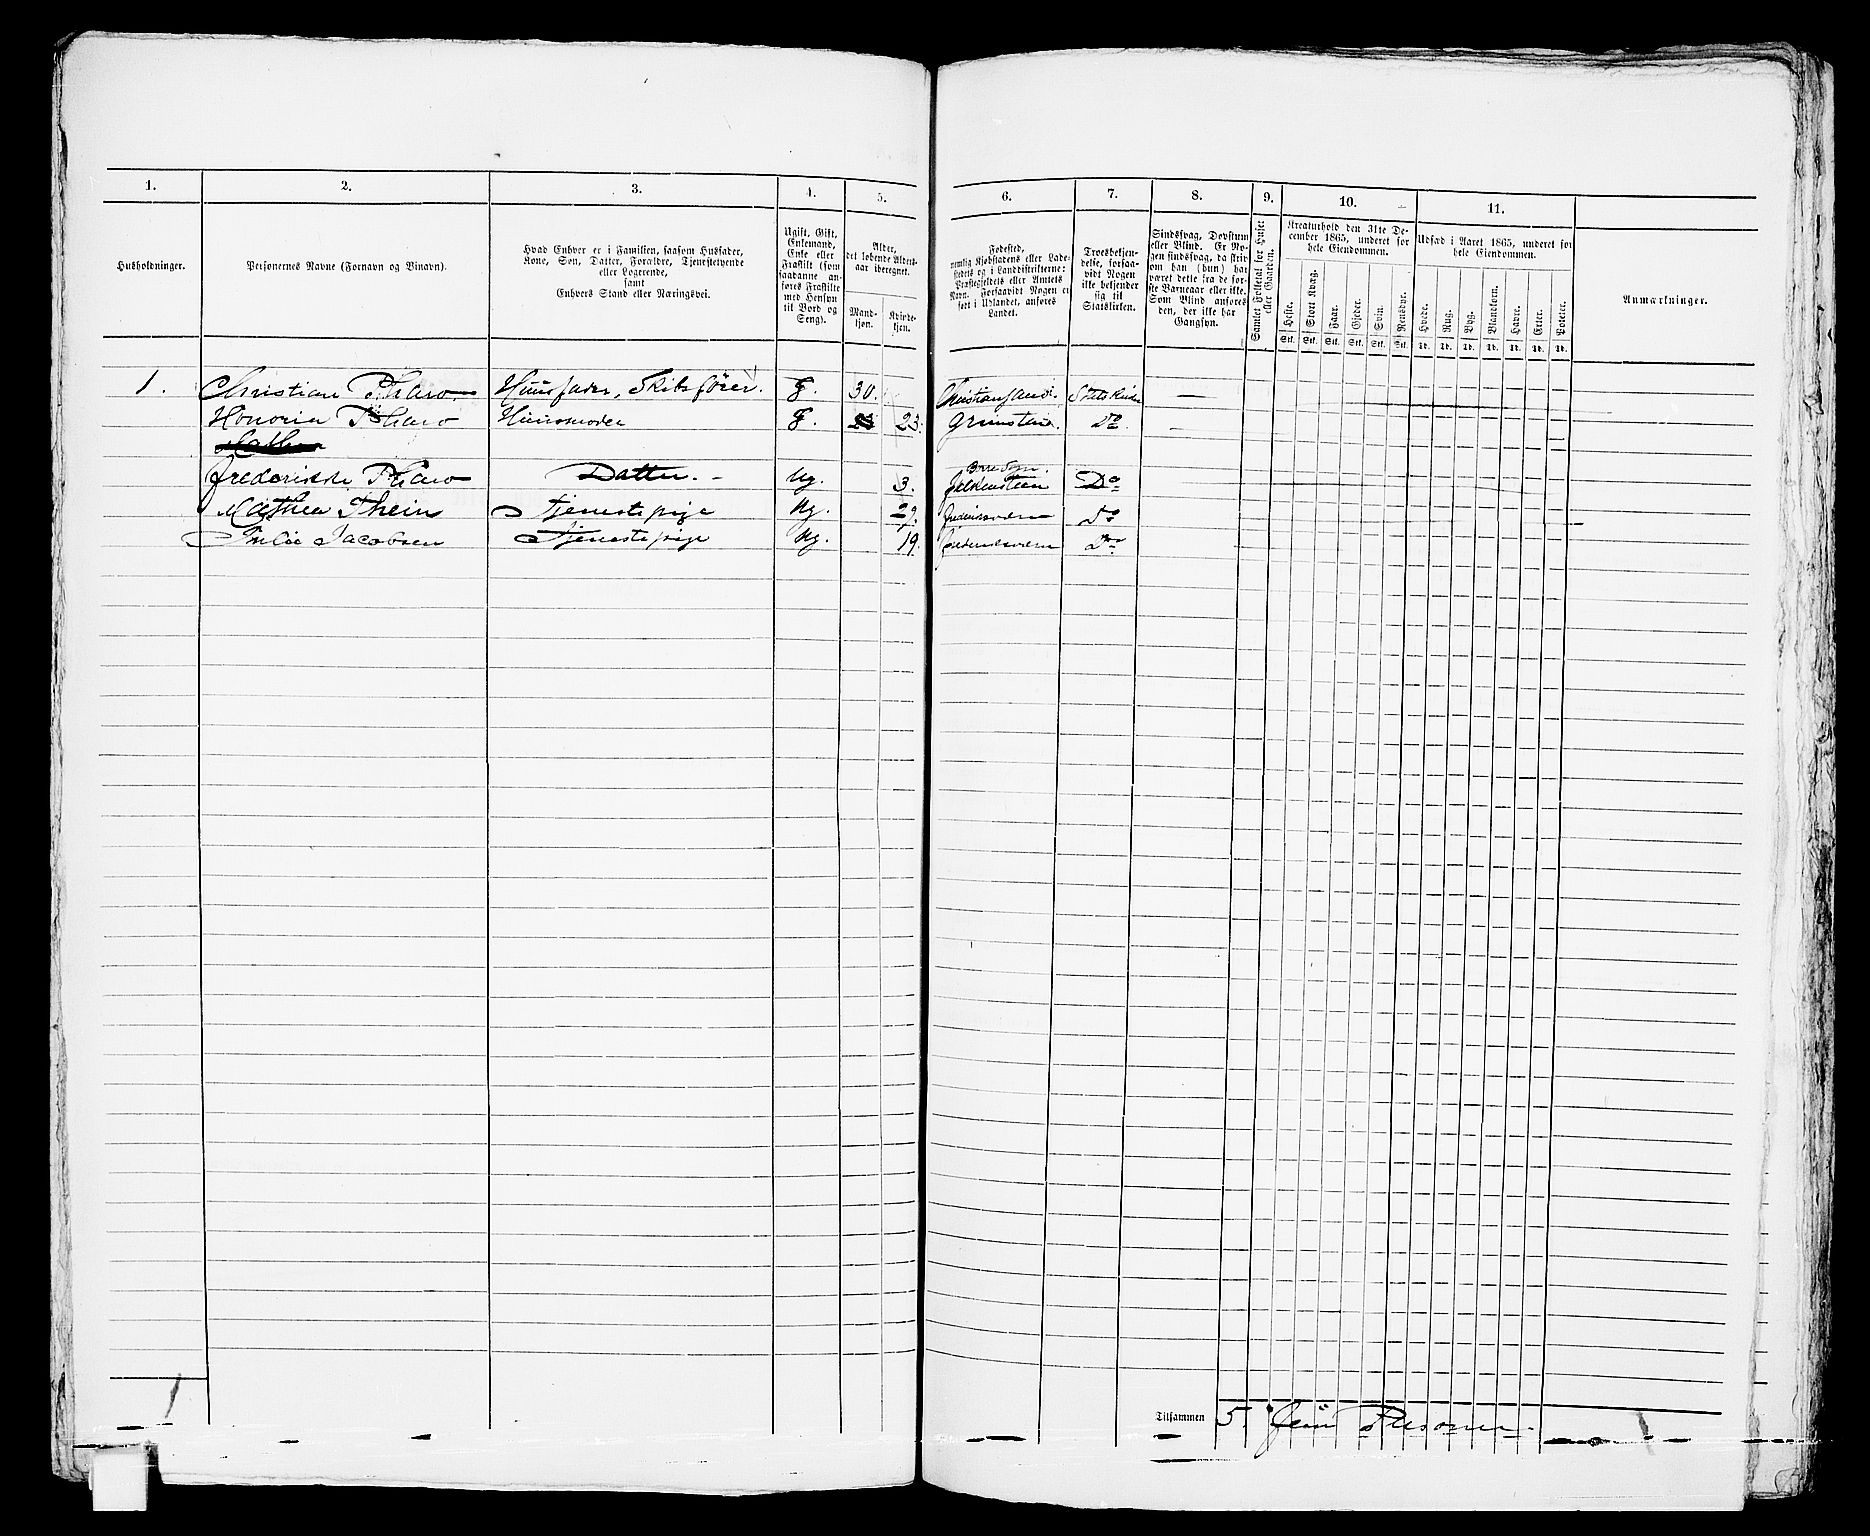 1. 2. 3. 4. 5. 6. 7. 8. 9. 10. 11.
Husholdninger.
Personernes Navne (Fornavn og Vinavn).
Hvad Enhver er i Familien, saasom Husfader,
Kone, Søn, Datter, Forældre, Tjenstetyende
eller Logerende,
samt
Enhvers Stand eller Næringsvei.
Ugift, Gift,
Enkemand,
Enke eller
Fraskilt (som
saadanne an-
føres Fraskilte
med Hensyn
til Bord og
Seng).
Alder,
det løbende Alders-
aar iberegnet.
Mand-
kjøn.
Kvinde-
kjøn.
Fødested,
nemlig Kjøbstadens eller Lade-
stedets og i Landdistrikterne:
Præstegjeldets eller Amtets
Navn. Forsaavidt Nogen er
født i Udlandet, anføres
Landet.
Troesbekjen-
delse, forsaa-
vidt Nogen
ikke bekjender
sig til
Statskirken.
Sindssvag, Døvstum
eller Blind. Er No-
gen sindssvag, da skriv
om han (hun) har
været dette fra de før-
ste Barneaar eller ikke.
Som Blind anføres
den, der ikke har
Gangsyn.
Samlet Folketal for Huset
eller Gaarden.
Kreaturhold den 31te De-
cember 1865, underet for
hele Eiendommen.
Heste. Stort Kvæg. Faar. Gjeder. Svin. Rensdyr.
Stk. Stk. Stk. Stk. Stk. Stk.
Udsæd i Aaret 1865, underet for
hele Eiendommen.
Hvede. Rug. Byg. Blandkorn. Havre. Erter. Poteter.
Td. Td. Td. Td. Td. Td. Td.
Anmærkninger.
1. Christian Pharo Huusfader, Skibsfører. g. 30. Christiansand.
Honoria Pharo Huusmoder g. 23 23. Grimstad. Do.
Frederikke Pharo Datter. Ug. 3. Do
Mathea Thein Tjenestepige Ug. 29. Frederiksværn Do
Julie Jacobsen Tjenestepige Ug. 19. Frederiksværn Do
Tilsammen 5. Fem Personer.